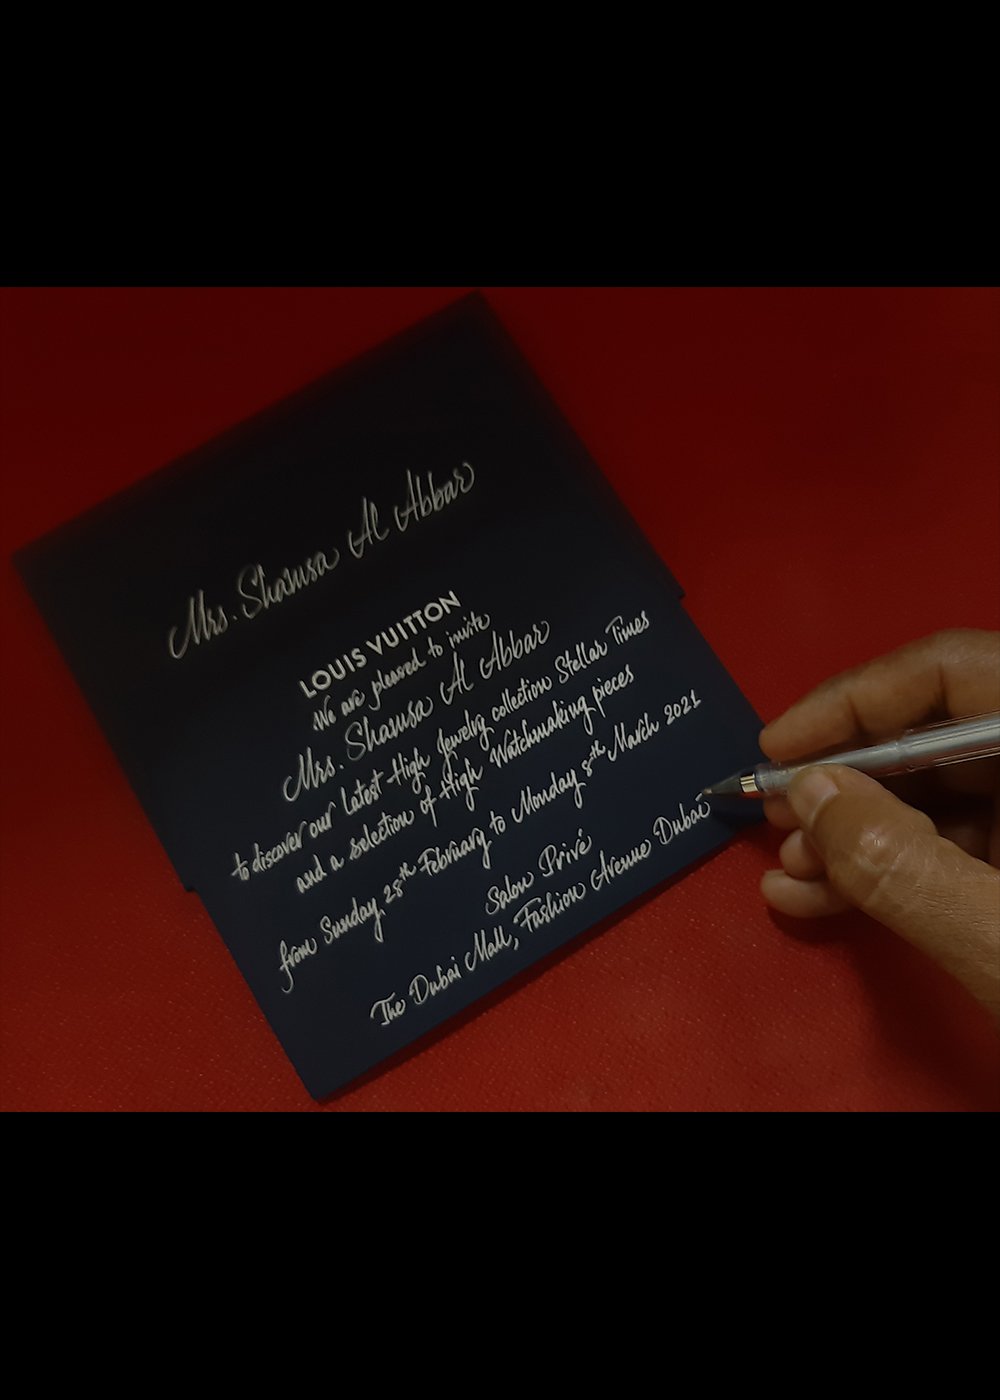 Mrs. Shamsa Al Abbar
LOUIS VUITTON
We are pleased to invite
Mrs. Shamsa Al Abbar
to discover our latest High Jewelry collection Stellar Times
and a selection of High Watchmaking pieces
from Sunday, 28th February to Monday 8th March 2021
Salon Privé
The Dubai Mall, Fashion Avenue Dubai